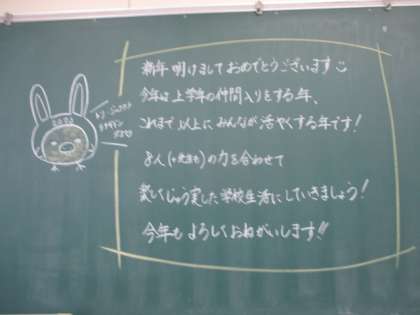 新年 明けまして おめでとうございます
今年は 上学年の仲間入りをする年、
これまで 以上に みんなが 活やくする年です!
8人(+先生も)の力を合わせて
楽しくじゅう実した学校生活にしていきましょう!
今年も よろしくおねがいします!!